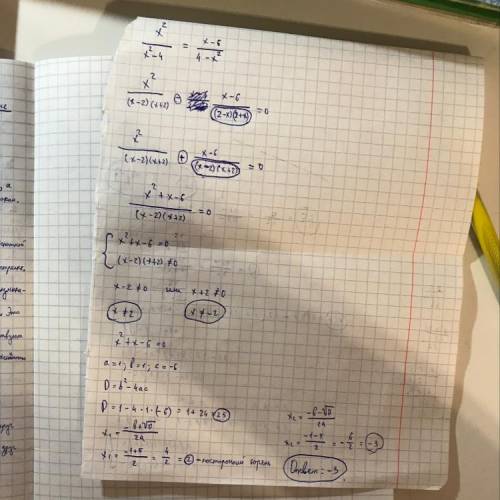 x²/(x²-4) = (x-6)/(4-x²)
x²/((x-2)(x+2)) - (x-6)/((2-x)(2+x)) = 0
x²/((x-2)(x+2)) + (x-6)/((x-2)(x+2)) = 0
(x²+x-6)/((x-2)(x+2)) = 0
{ x²+x-6=0
(x-2)(x+2)≠0
x-2≠0 или x+2≠0
x≠2 x≠-2
x²+x-6=0
a=1; b=1; c=-6
D=b²-4ac
D=1-4·1·(-6)=1+24=25
x₁=(-b+√D)/2a
x₁=(-1+5)/2=4/2=2 - посторонний корень
x₂=(-b-√D)/2a
x₂=(-1-5)/2=-6/2=-3
Ответ: -3